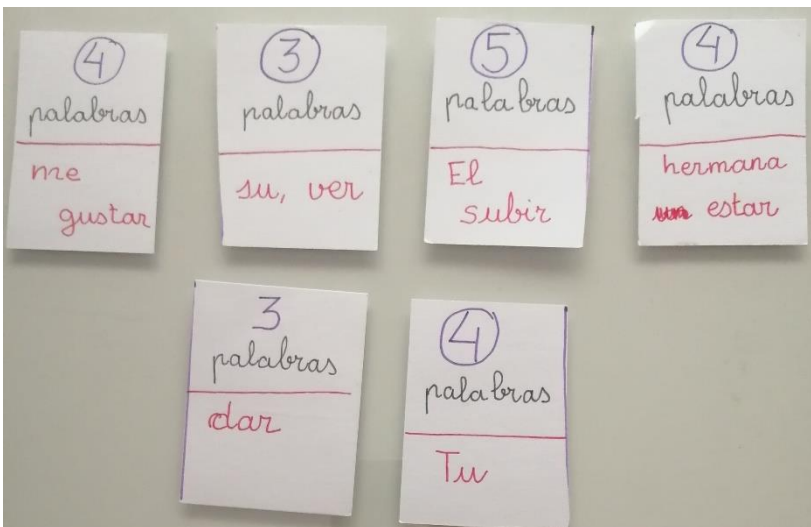 4
palabras
me
gustar
3
palabras
su, ver
5
palabras
El
subir
4
palabras
hermana
estar
3
palabras
dar
4
palabras
Tu